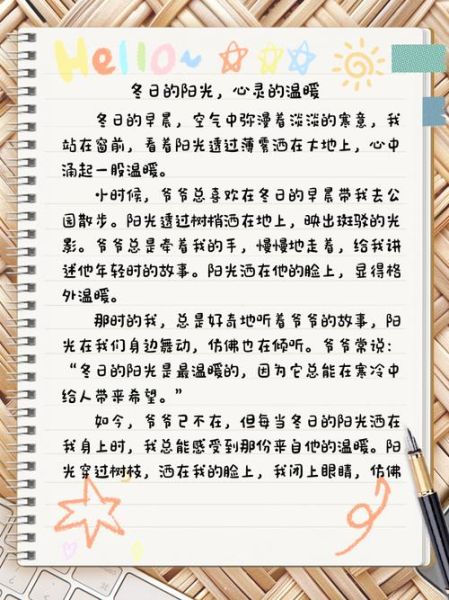 Hello~
冬日的阳光，心灵的温暖
冬日的早晨，空气中弥漫着淡淡的寒意，我
站在窗前，看着阳光透过薄雾洒在大地上，心中
涌起一股温暖。
小时候，爷爷总喜欢在冬日的早晨带我去公
园散步。阳光透过树梢洒在地上，映出斑驳的光
影。爷爷总是牵着我的手，慢慢地走着，给我讲
述他年轻时的故事。阳光洒在他的脸上，显得格
外温暖。
那时的我，总是好奇地听着爷爷的故事，阳
光在我们身边舞动，仿佛也在倾听。爷爷常说：
“冬日的阳光是最温暖的，因为它总能在寒冷中
给人带来希望。”
如今，爷爷已不在，但每当冬日的阳光洒在
我身上时，我总能感受到那份来自他的温暖。阳
光穿过树枝，洒在我的脸上，我闭上眼睛，仿佛